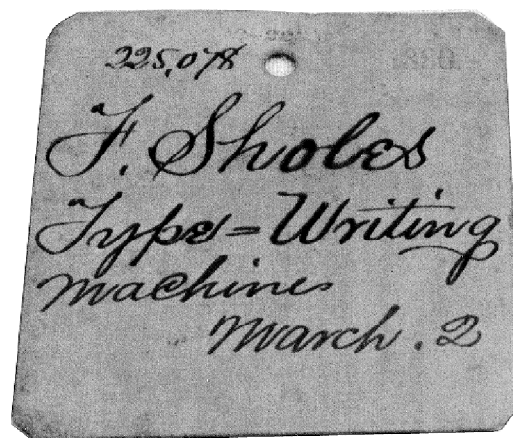 225,078
1880.
F. Sholes
Type=Writing
machines
March. 2